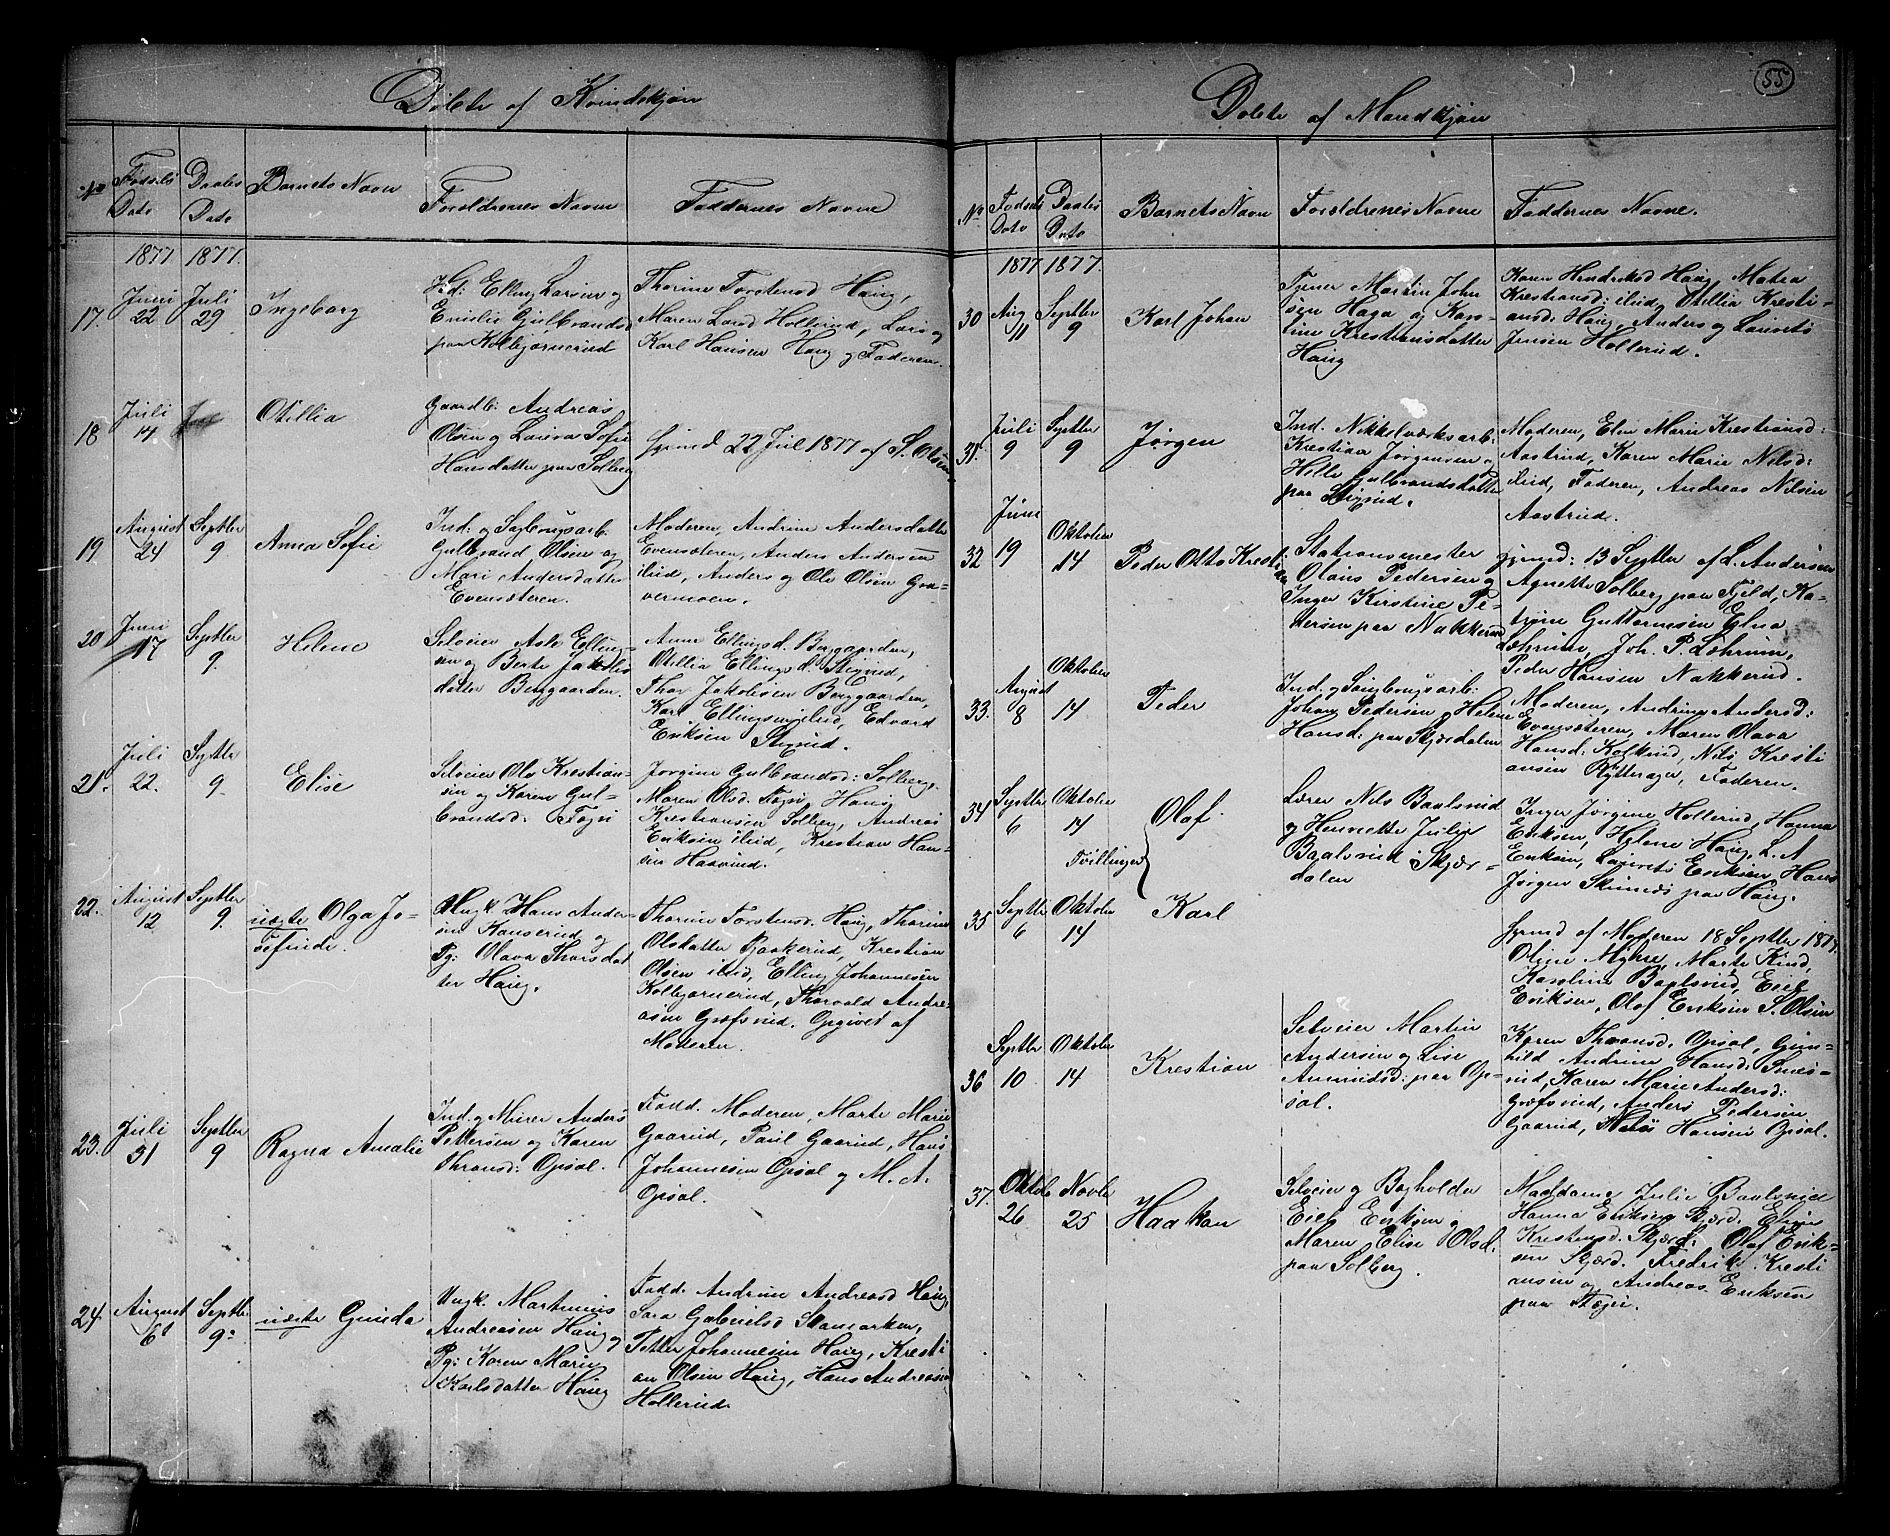 Døbte af Kvindekjøn
No Fødsels Dato Daabs Dato Barnets Navn Forældrenes Navn Faddernes Navne
1877 1877.
17. Juni 22 Juli 29 Ingeborg
Hd: Elling Larsen og
Gulbrandsd
paa Kolbjørnerud
Thorine Torstensd Haug,
Maren Larsd Hollerud, Lars og
Karl Hansen Haug og Faderen.
18 Juli 14 Otillia
Gaardb: Andreas
Olsen og Laura Sofie
Hansdatter paa Solberg
Hjemd 22 Jul 1877 af S. Olsen
19 August 24 Septbr 9. Anna Sofie
Ind: og Sagbrugsarb.
Gulbrand Olsen og
Mari Andersdatter
Evensæteren.
Moderen, Andrine Andersdatter
Evensæteren, Anders Andersen
ibid, Anders og Ole Olsen Gra-
vermoen.
20 Juni 17 Septbr 9. Helene
Selveier Asle Elling-
sen og Berte Jakobs
datter Berggaarden.
Anne Ellingsd. Berggaarden,
Otillia Ellingsd. Stigrud,
Thor Jakobsen Berggaarden,
Karl Ellingsen ibid, Edvard
Eriksen Stigrud.
21. Juli 22. Septbr 9. Elise
Selveier Ole Krestian-
sen og Karen Gul-
brandsd:
Jørgine Gulbrandsd: Solberg,
Maren Olsd. Hans
Krestiansen Solberg, Andreas
Eriksen ibid, Krestian Han-
sen Haavrud.
22. August 12 Septbr 9. uægte Olga Jo-
sefine.
Ungk. Hans Ander
sen Hanserud og
Pg: Olava Thorsdat
ter Haug.
Thorine Torstensd. Haug, Thorine
Olsdatter Bjaakerud, Krestian
Olsen ibid, Elling Johannesen
Kolbjørnerud, Thorvald Andre-
asen Græfsrud. Opgivet af
Moderen.
23. Juli 31 Septbr 9 Ragna Amalie
Ind. og Murer Anders
Pettersen og Karen
Thronsd: Opsal.
Fadd. Moderen, Marte Marie
Gaarud, Paul Gaarud, Hans
Johannesen Opsal og M. A.
Opsal.
24 August 6 Septbr 9 uægte Gunda
Ungk. Martinius
Andreasen Haug og
Pg: Karen Marie
Karlsdatter Haug
Fadd. Andrine Andreasd Haug,
Sara Gabrielsd Skamarken,
Petter Johannesen Haug, Kresti
an Olsen Haug, Hans Andreasen
Hollerud.
Døbte af Mandkjøn
55
No Fødsels Dato Daabs Dato Barnets Navn Forældrenes Navne Faddernes Navne.
1877 1877.
30 Aug 11 Septbr 9 Karl Johan
Tjener Martin Johan
sen Haga og Karo-
line Krestiansdatter
Haug
Karen Hendriksd Haug, Matea
Krestiansd: ibid, Otillia Kresti-
ansd: Haug, Anders og Lauretz
Jensen Hollerud.
31. Juli 9 Septbr 9 Jørgen
Ind. Nikkelværksarb.
Krestian Jørgensen og
Helle Gulbrandsdatter
paa Stigrud.
Moderen, Elen Marie Krestiansd:
Aastrud, Karen Marie Nilsd:
ibid, Faderen, Andreas Nilsen
Aastrud.
32 Juni 19 Oktober 14 Peder Otto Kresti
an
Stationsmester
Olaus Pedersen og
Inger Kirstine Pe-
dersen paa Nakkerud
hjemd: 13 Septbr af L. Andersen
Agnette Solberg paa Fjeld, Ka-
trine Guttormsen, Elna
Læhrum, Joh. P. Læhrum,
Peder Hansen Nakkerud.
33. August 8 Oktober 14 Peder
Ind. og Saugbrugsarb:
Johan Pedersen og Helene
Hansd: paa Skjærdalen
Moderen, Andrine Andersd:
Evensæteren, Maren Olava
Hansd: Nils Kresti
ansen Rytterager, Faderen.
34 Septbr 6 Oktober 14 Olaf.
Tvillinger
Lærer Nils Baalsrud
og Henriette Julie
Baalsrud i Skjær-
dalen
Inger Jørgine Hollerud, Hanna
Eriksen, Helene Haug, L. A
Eriksen, Lauretz Eriksen, Hans
Jørgen paa Haug.
35 Septbr 6 Oktober 14 Karl
Hjemd af Moderen 18 Septbr 1877.
Oline Myhre, Marte Kind,
Karoline Baalsrud, Erik
Eriksen, Olaf Eriksen S. Olsen
36 Septbr 10 Oktober 14 Krestian
Selveier Martin
Andersen og Lise
Amundsd: paa Op-
sal.
Karen Thronsd. Opsal, Gun-
hild Andrine Hansd:
rud, Karen Marie Andersd:
Græfsrud, Anders Pedersen
Gaarud, Hansen Opsal.
37. Oktbr 26 Novbr 25 Haakon
Selveier og Bogholder
Erik Eriksen og
Maren Elise Olsd.
paa Solberg.
Maddame Julie Baalsrud
Hanna Eriksen Skjærd. Eline
Krestensd. Skjærd: Olaf Erik-
sen Skjærd. Fredrik Kresti
ansen og Andreas Eriksen
paa